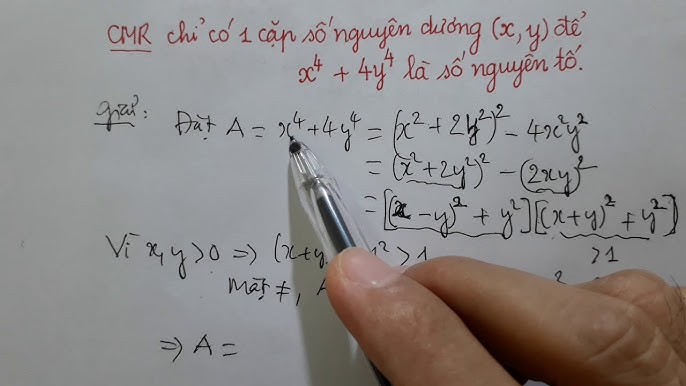 CMR chỉ có 1 cặp số nguyên dương (x, y) để
x⁴ + 4y⁴ là số nguyên tố.
Giải: Đặt A = x⁴ + 4y⁴ = (x² + 2y²)² - 4x²y²
= (x² + 2y²)² - (2xy)²
= [(x - y)² + y²][(x + y)² + y²]
Vì x, y > 0 => (x + y ² > 1 > 1
Mặt ≠, A
=> A =